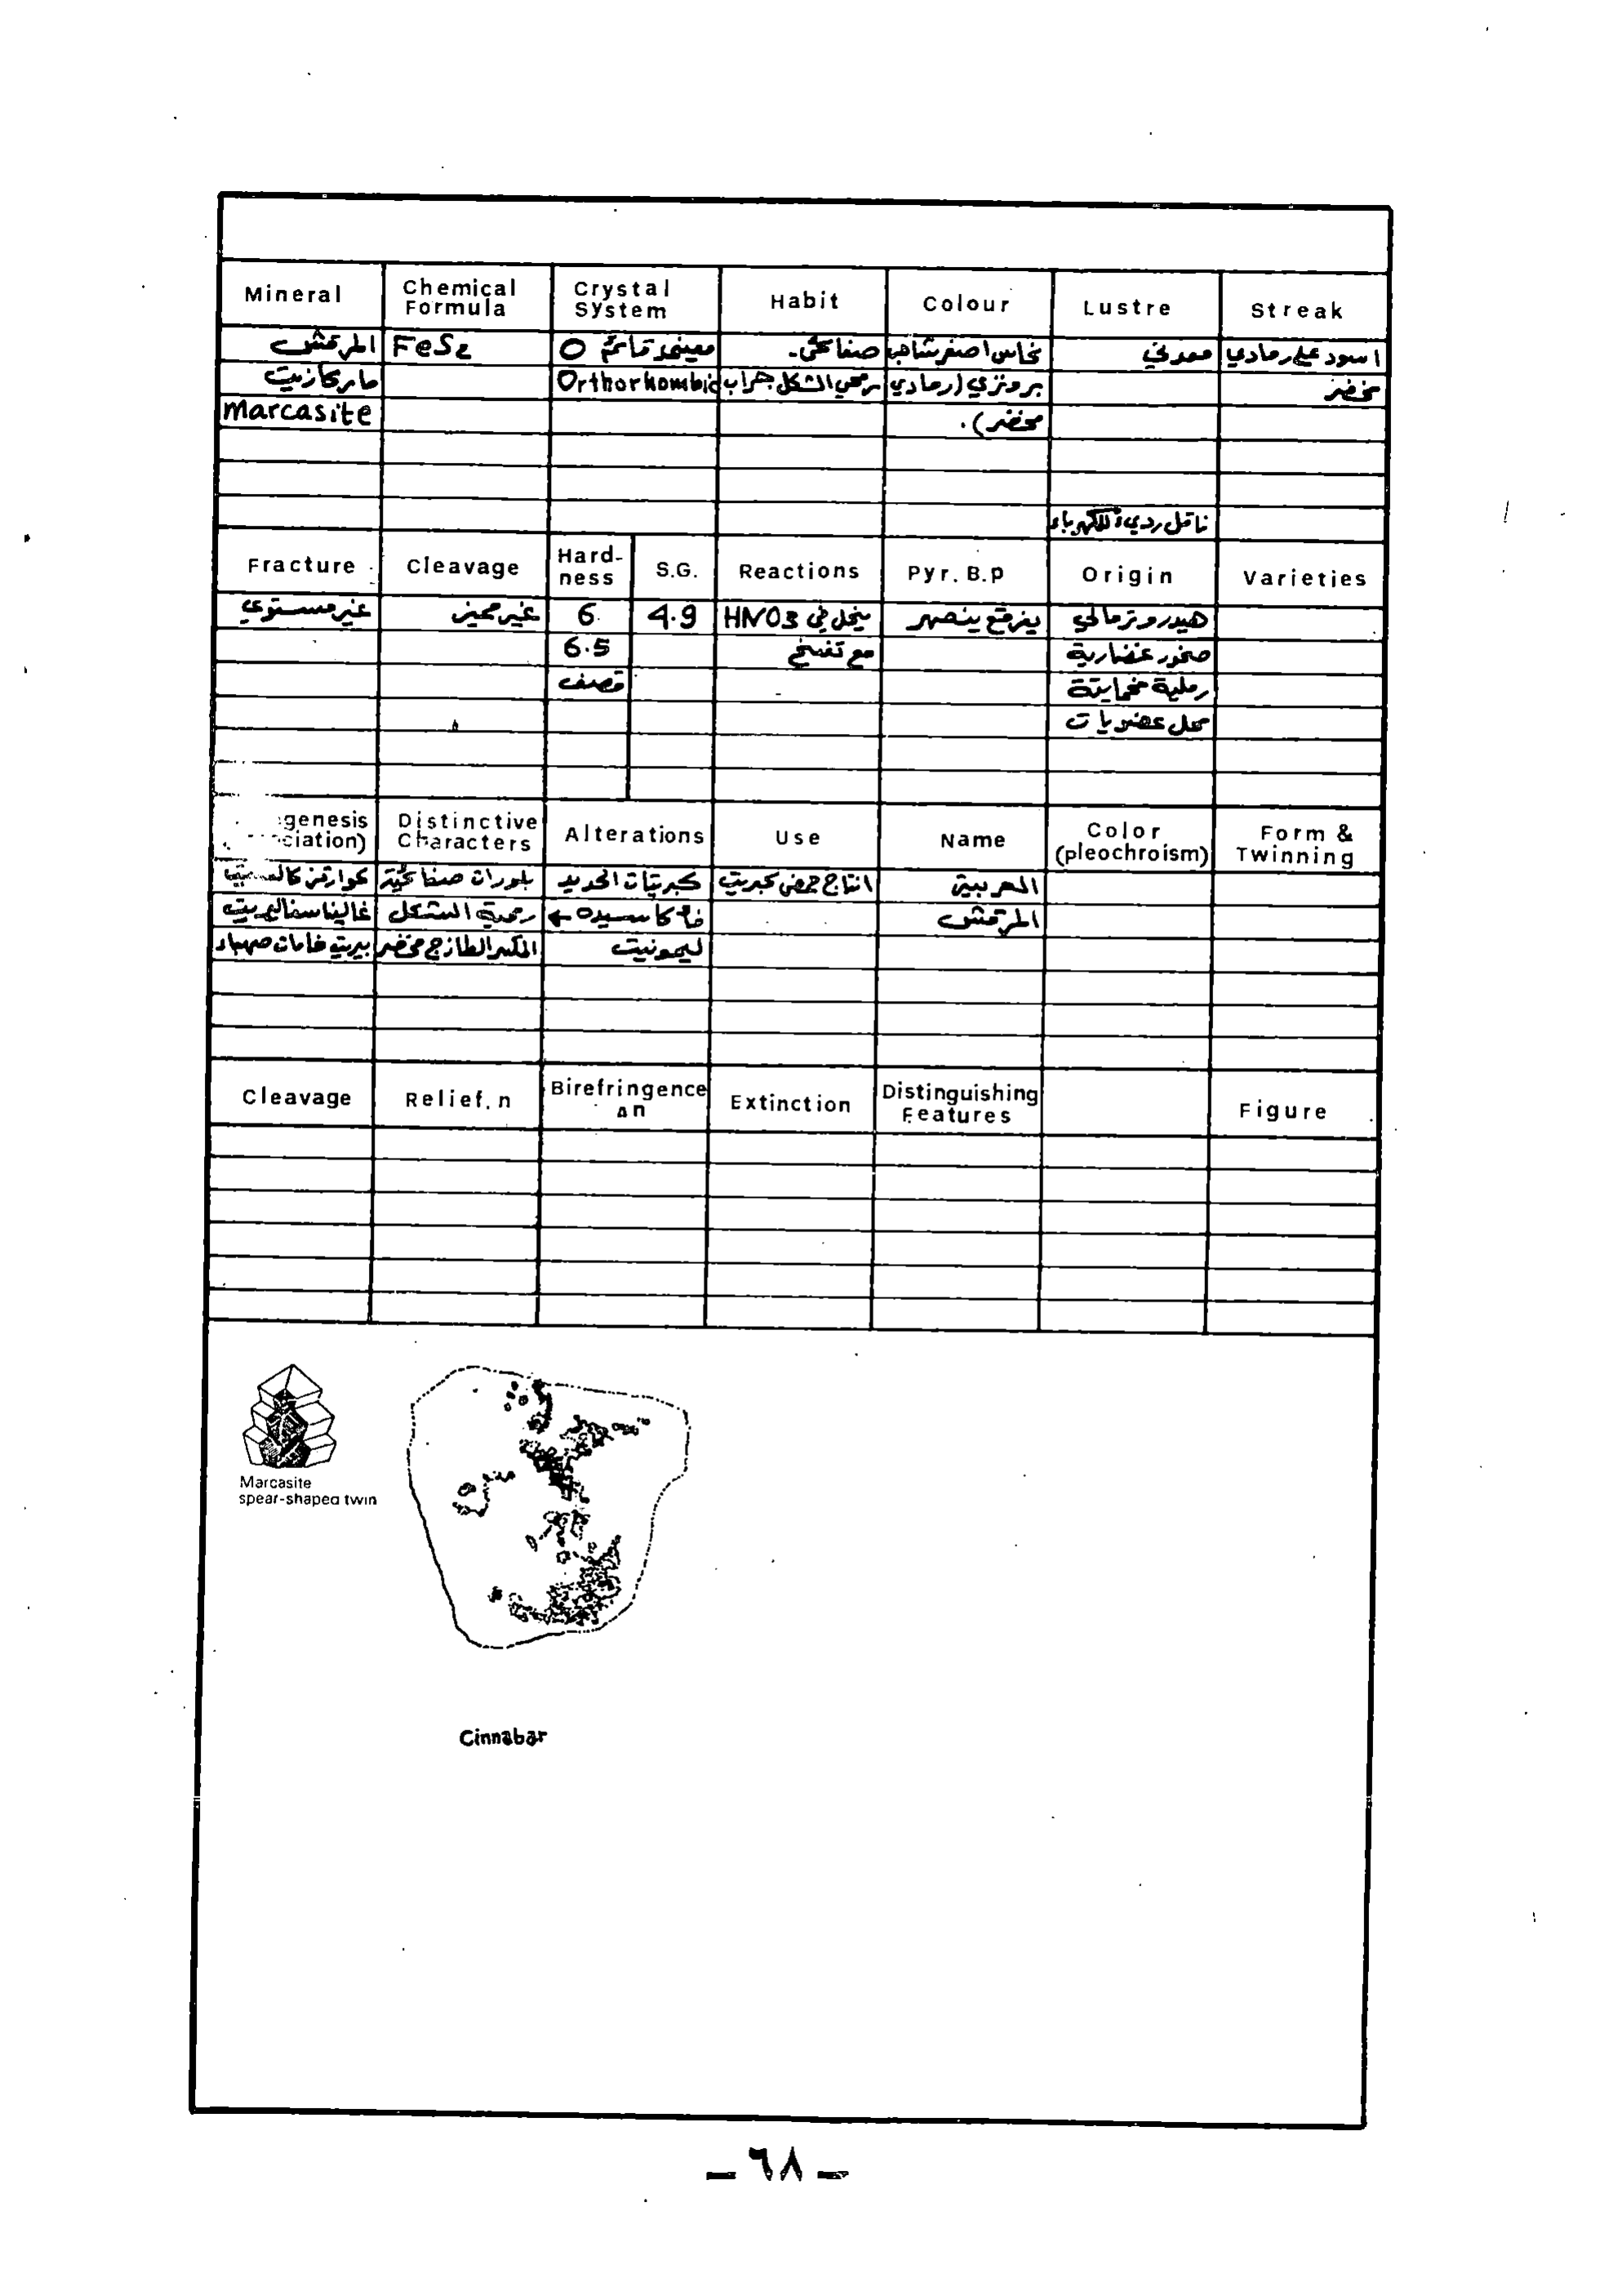 Mineral Chemical Formula Crystal System Habit Colour Lustre Streak
المرقش FeS2 معيني قائم O صفائحي. نحاس اصفر شاحب معدني اسود على رمادي
ماركازيت Orthorhombic رمحي الشكل جراب برونزي (رمادي مخضر
Marcasite مخضر).
ناقل رديء للكهرباء
Fracture Cleavage Hard-ness S.G. Reactions Pyr. B.p Origin Varieties
غير مستوي غير مميز 6 4.9 ينحل في HNO3 يفرقع ينصهر هيدروترمالي
6.5 مع تفسخ صخور غضارية
قصف رملية
محل عضويات
genesis ciation) Distinctive Characters Alterations Use Name Color (pleochroism) Form & Twinning
كوارتز كالسيت بلورات صفائحية كبريتات الحديد انتاج حمض كبريت العربية
غالينا سفاليريت رمحية الشكل ← المرقش
بيريت خامات المكسر الطازج مخضر ليمونيت
Cleavage Relief. n Birefringence Δn Extinction Distinguishing Features Figure
Marcasite
spear-shaped twin
Cinnabar
- ٦٨ -